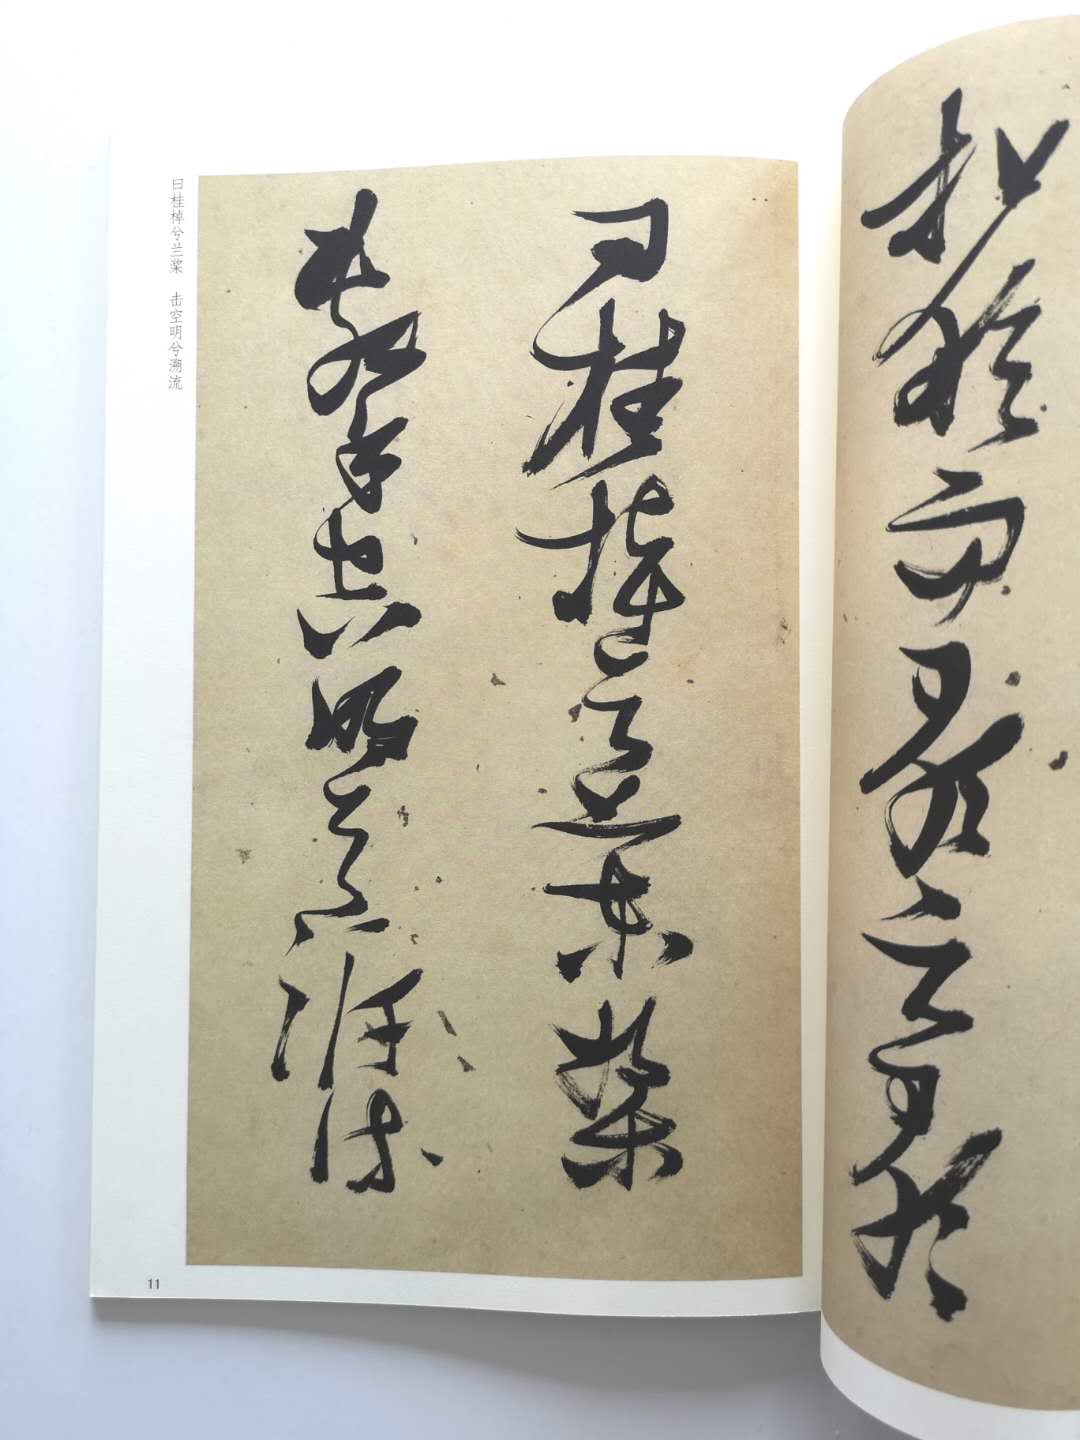 扣舷而歌之歌
曰桂棹兮蘭槳
擊空明兮泝流
曰桂棹兮兰桨 击空明兮溯流
11